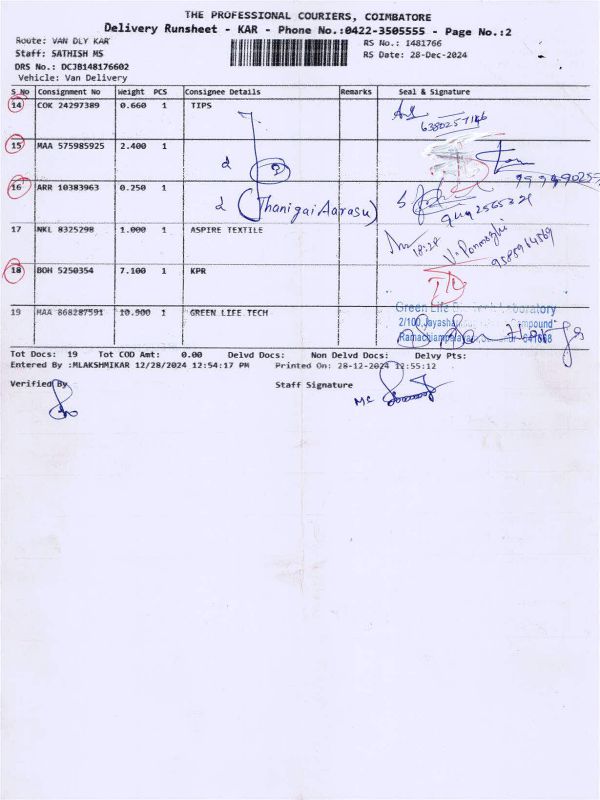 THE PROFESSIONAL COURIERS, COIMBATORE
Delivery Runsheet - KAR - Phone No.:0422-3505555 - Page No.:2
Route: VAN DLY KAR RS No.: 1481766
Staff: SATHISH MS RS Date: 28-Dec-2024
DRS No.: DCJB148176602
Vehicle: Van Delivery
S No Consignment No Weight PCS Consignee Details Remarks Seal & Signature
14 COK 24297389 0.660 1 TIPS
6380257146
15 MAA 575985925 2.400 1
16 ARR 10383963 0.250 1 (Thanigai Aarasu)
9442565321
17 NKL 8325298 1.000 1 ASPIRE TEXTILE
18:24 V. Ponmozhi
9585964569
18 BOH 5250354 7.100 1 KPR
19 MAA 868287591 10.900 1 GREEN LIFE TECH
Green Life Laboratory
2/100, Jayasha Compound"
Ramachiampalaya
Tot Docs: 19 Tot COD Amt: 0.00 Delvd Docs: Non Delvd Docs: Delvy Pts:
Entered By :MLAKSHMIKAR 12/28/2024 12:54:17 PM Printed On: 28-12-2024 12:55:12
Verified By Staff Signature